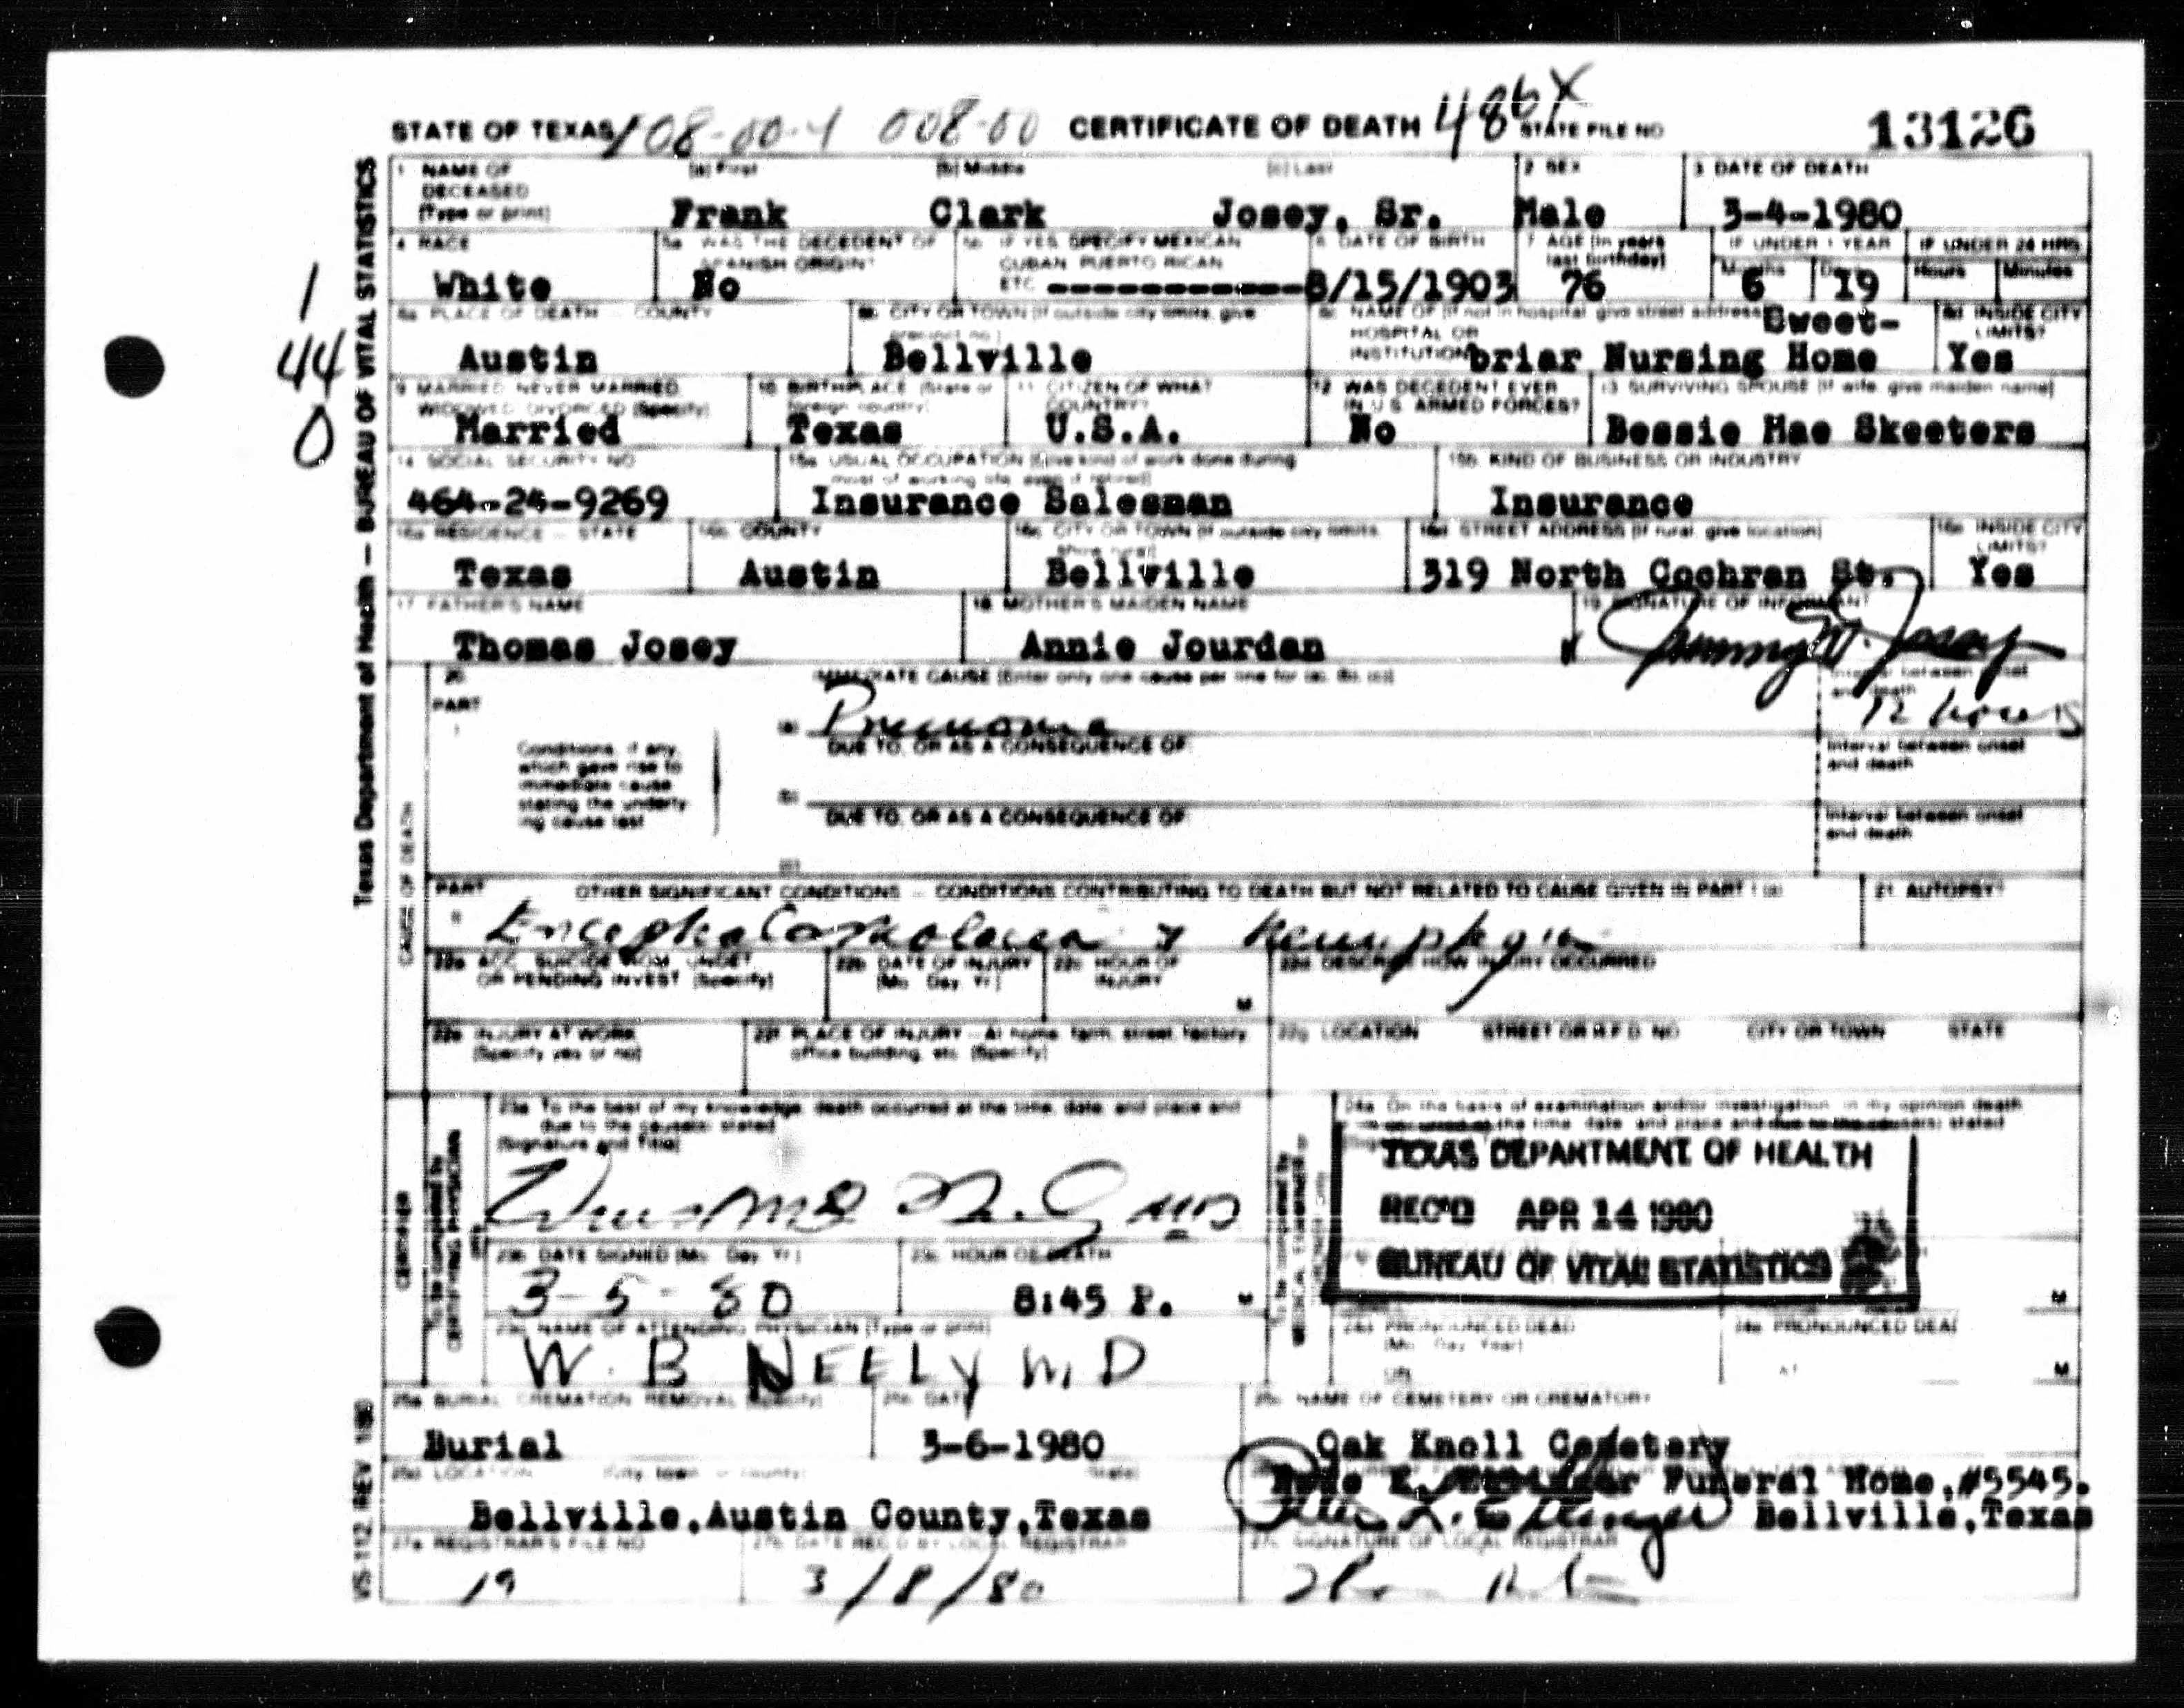 STATE OF TEXAS 108-00-1 008-00 CERTIFICATE OF DEATH 486X STATE FILE NO 13126
Texas Department of Health — BUREAU OF VITAL STATISTICS
1 NAME OF DECEASED (Type or print) (a) First (b) Middle (c) Last 2 SEX 3 DATE OF DEATH
Frank Clark Josey, Sr. Male 3-4-1980
4 RACE 5a WAS THE DECEDENT OF SPANISH ORIGIN? 5b IF YES, SPECIFY MEXICAN CUBAN PUERTO RICAN ETC 6 DATE OF BIRTH 7 AGE (In years last birthday) IF UNDER 1 YEAR IF UNDER 24 HRS
Months Days Hours Minutes
White No ------------ 8/15/1903 76 6 19
1
44
0
8a PLACE OF DEATH — COUNTY 8b CITY OR TOWN (If outside city limits, give precinct no.) 8c NAME OF (If not in hospital, give street address) HOSPITAL OR INSTITUTION 8d INSIDE CITY LIMITS?
Austin Bellville Sweet-briar Nursing Home Yes
9 MARRIED, NEVER MARRIED, WIDOWED, DIVORCED (Specify) 10 BIRTHPLACE (State or foreign country) 11 CITIZEN OF WHAT COUNTRY? 12 WAS DECEDENT EVER IN U.S. ARMED FORCES? 13 SURVIVING SPOUSE (If wife, give maiden name)
Married Texas U.S.A. No Bessie Mae Skeeters
14 SOCIAL SECURITY NO 15a USUAL OCCUPATION (Give kind of work done during most of working life, even if retired) 15b KIND OF BUSINESS OR INDUSTRY
464-24-9269 Insurance Salesman Insurance
16a RESIDENCE — STATE 16b COUNTY 16c CITY OR TOWN (If outside city limits, show rural) 16d STREET ADDRESS (If rural, give location) 16e INSIDE CITY LIMITS?
Texas Austin Bellville 319 North Cochran St. Yes
17 FATHER'S NAME 18 MOTHER'S MAIDEN NAME 19 SIGNATURE OF INFORMANT
Thomas Josey Annie Jourdan Josey
CAUSE OF DEATH
20 PART I IMMEDIATE CAUSE (Enter only one cause per line for (a), (b), (c)) Interval between onset and death
(a) Pneumonia 12 hours
Conditions, if any, which gave rise to immediate cause stating the underlying cause last
DUE TO, OR AS A CONSEQUENCE OF Interval between onset and death
(b)
DUE TO, OR AS A CONSEQUENCE OF Interval between onset and death
(c)
PART II OTHER SIGNIFICANT CONDITIONS — CONDITIONS CONTRIBUTING TO DEATH BUT NOT RELATED TO CAUSE GIVEN IN PART I (a) 21 AUTOPSY?
22a ACC, SUICIDE, HOM, UNDET, OR PENDING INVEST (Specify) 22b DATE OF INJURY (Mo, Day, Yr) 22c HOUR OF INJURY M 22d DESCRIBE HOW INJURY OCCURRED
22e INJURY AT WORK (Specify yes or no) 22f PLACE OF INJURY — At home, farm, street, factory, office building, etc (Specify) 22g LOCATION STREET OR R.F.D. NO CITY OR TOWN STATE
CERTIFIER
To be completed by CERTIFYING PHYSICIAN
23a To the best of my knowledge, death occurred at the time, date, and place and due to the cause(s) stated (Signature and Title)
24a On the basis of examination and/or investigation, in my opinion death occurred at the time, date, and place and due to the cause(s) stated
TEXAS DEPARTMENT OF HEALTH
REC'D APR 14 1980
BUREAU OF VITAL STATISTICS
23b DATE SIGNED (Mo, Day, Yr) 23c HOUR OF DEATH
3-5-80 8:45 P. M M
23d NAME OF ATTENDING PHYSICIAN (Type or print) 24d PRONOUNCED DEAD (Mo, Day, Year) 24e PRONOUNCED DEAD
W. B NEELY M D ON AT M
25a BURIAL, CREMATION, REMOVAL (Specify) 25b DATE 25c NAME OF CEMETERY OR CREMATORY
Burial 3-6-1980 Oak Knoll Cemetery
25d LOCATION (City, town, or county) (State)
Funeral Home,#5545.
Bellville,Austin County,Texas Bellville,Texas
27a REGISTRAR'S FILE NO 27b DATE REC'D BY LOCAL REGISTRAR 27c SIGNATURE OF LOCAL REGISTRAR
19 3/8/80
VS-112 REV 1/80